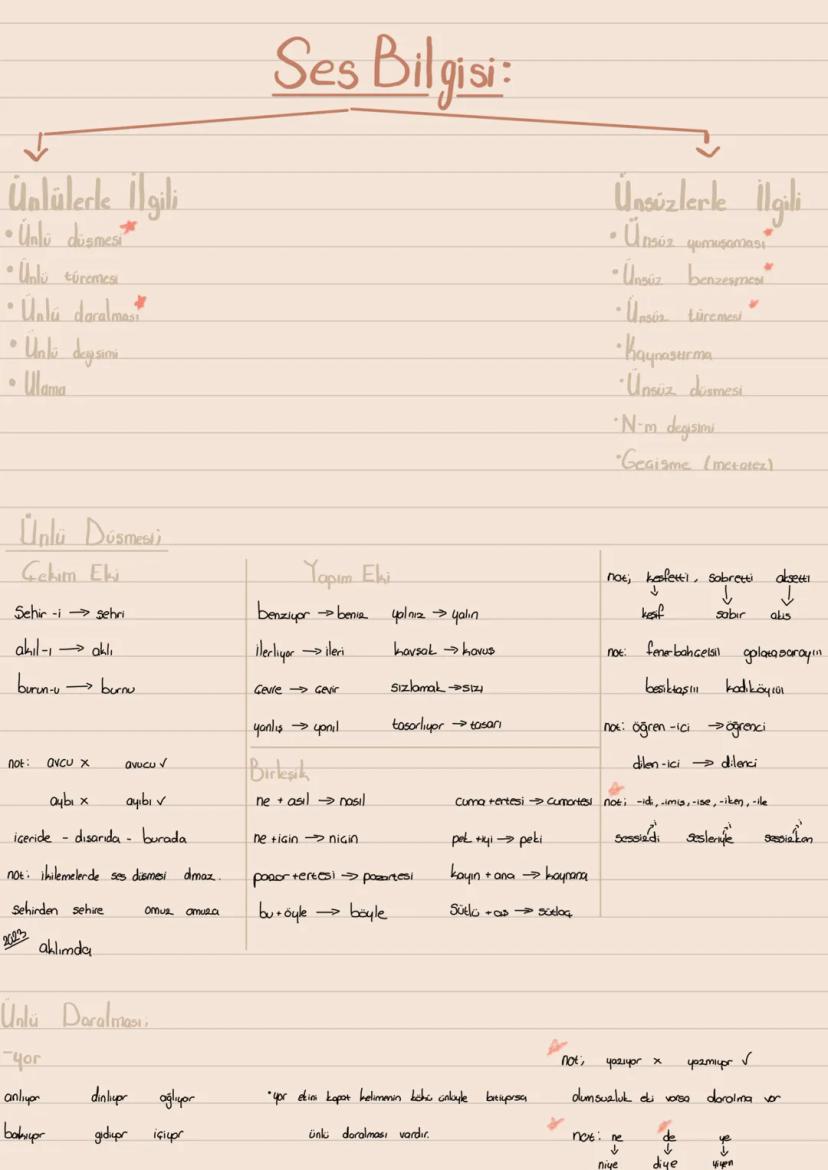 Ses Bilgisi:
Ünlülerle İlgili
• Ünlü düşmesi
• Ünlü türemesi
• Ünlü daralması
• Ünlü degişimi
• Ulama
Ünsüzlerle İlgili
• Ünsüz yumuşaması
• Ünsüz benzeşmesi
• Ünsüz türemesi
• Kaynaştırma
• Ünsüz düşmesi
• N-m degişimi
• Geçişme (metatez)
Ünlü Düşmesi;
Çekim Eki
Şehir -i → şehri
akıl-ı → aklı
burun-u → burnu
not: avcu x avucu ✓
aybı x ayıbı ✓
içeride - dışarıda - burada
not: ikilemelerde ses düşmesi olmaz.
Şehirden şehire omuz omuza
2023 aklımda
Yapım Eki
benziyor → beniz yalnız → yalın
ilerliyor → ileri kavşak → kavuş
Çevre → çevir sızlamak → sızı
yanlış → yanıl tasarlıyor → tasarı
Birleşik
ne + asıl → nasıl cuma + ertesi → cumartesi
ne + için → niçin pek + iyi → peki
pazar + ertesi → pazartesi kayın + ana → kaynana
bu + öyle → böyle Sütlü + aş → sütlaç
not; keşfetti, sabretti aksetti
↓ ↓ ↓
keşif sabır akis
not: galatasarayın
kadıköyün
not: öğren -ici → öğrenci
dilen -ici → dilenci
not: -idi, -imiş, -ise, -iken, -ile
sessizdi sesleriyle sessizken
Ünlü Daralması;
-yor
anlıyor dinliyor ağlıyor
bakıyor gidiyor içiyor
• yor ekini kapat kelimenin kökü ünlüyle bitiyorsa
ünlü daralması vardır.
not; yazıyor x yazmıyor ✓
olumsuzluk eki varsa daralma var
not: ne de ye
↓ ↓ ↓
niye diye yiyen